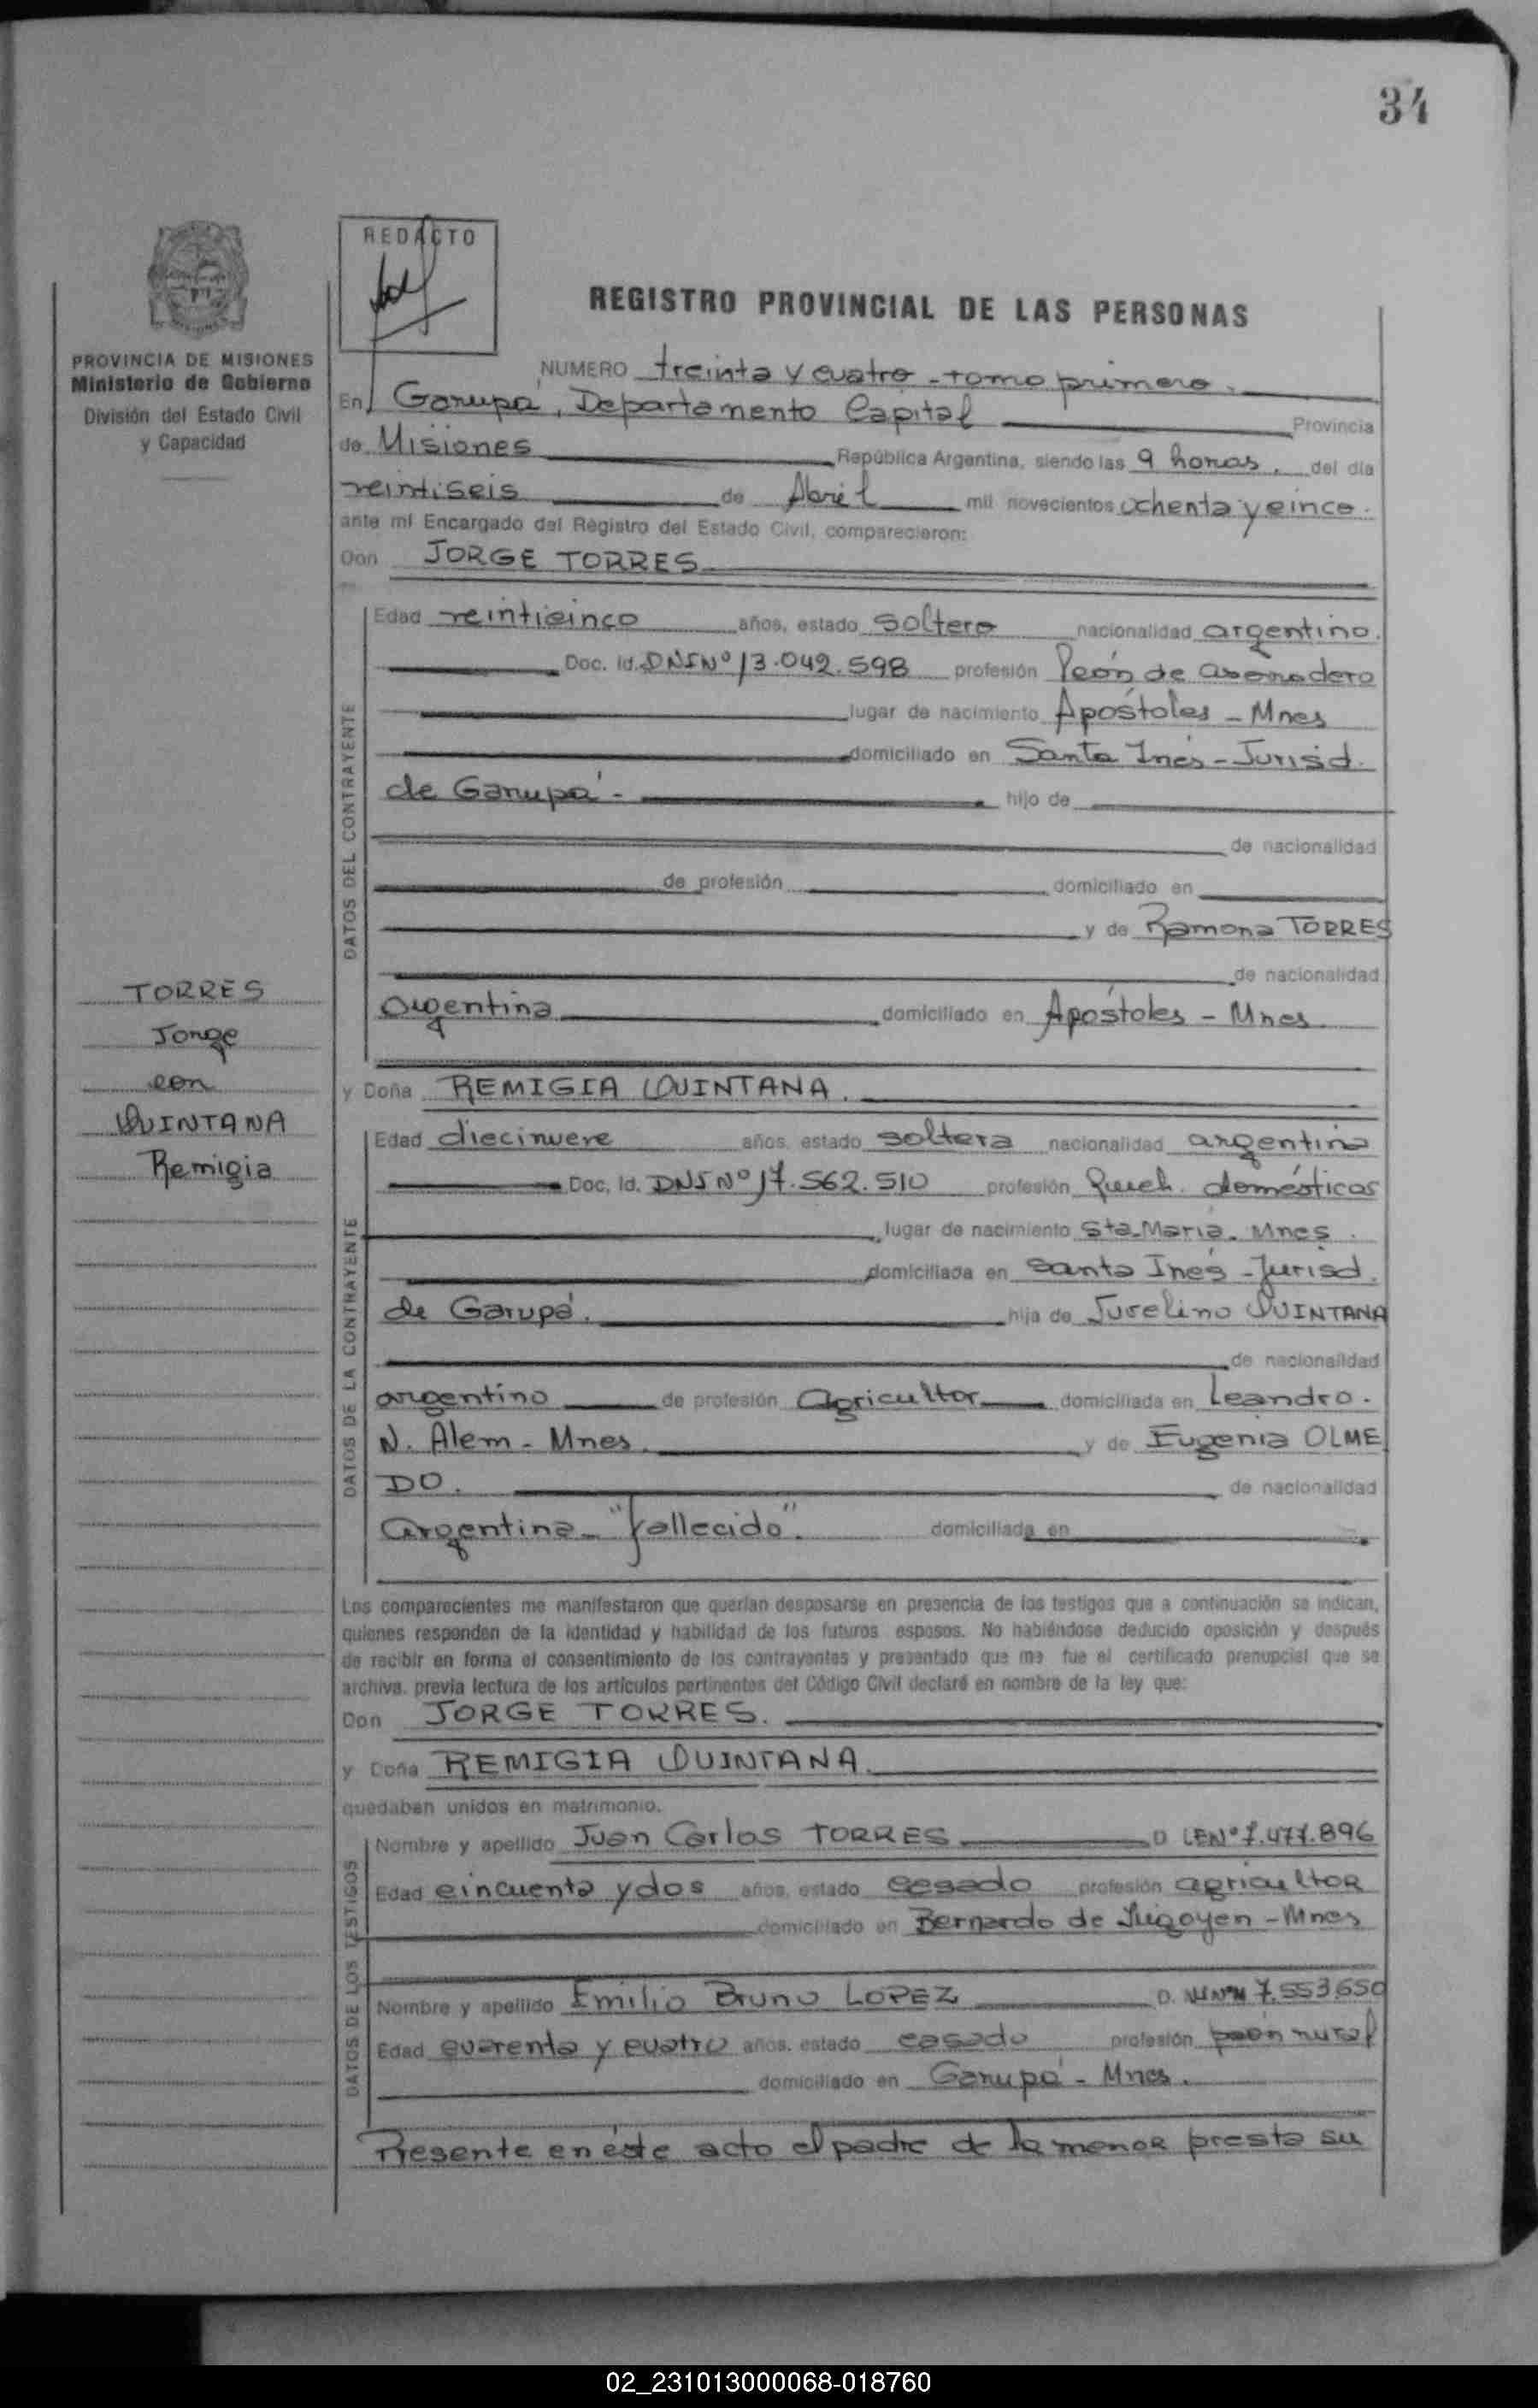 34
REDACTO
REGISTRO PROVINCIAL DE LAS PERSONAS
PROVINCIA DE MISIONES
Ministerio de Gobierno
División del Estado Civil
y Capacidad
NUMERO treinta y cuatro - tomo primero.
En Garupa, Departamento Capital Provincia
de Misiones República Argentina, siendo las 9 horas. del día
veintiseis de Abril mil novecientos ochenta y cinco.
ante mí Encargado del Registro del Estado Civil, comparecieron:
Don JORGE TORRES
DATOS DEL CONTRAYENTE
Edad veinticinco años, estado soltero nacionalidad argentino.
Doc. Id. DNI Nº 13.042.598 profesión Peón de aserradero
lugar de nacimiento Apóstoles - Mnes
domiciliado en Santa Inés - Jurisd.
de Garupá - hijo de
de nacionalidad
de profesión domiciliado en
y de Ramona TORRES
de nacionalidad
argentina domiciliado en Apóstoles - Mnes
TORRES
Jorge
con
QUINTANA
Remigia
y Doña REMIGIA QUINTANA.
DATOS DE LA CONTRAYENTE
Edad diecinueve años, estado soltera nacionalidad argentina
Doc. Id. DNI Nº 17.562.510 profesión Queh. domésticos
lugar de nacimiento Sta. María - Mnes.
domiciliada en Santa Inés - Jurisd.
de Garupá. hija de Juvelino QUINTANA
de nacionalidad
argentino de profesión Agricultor domiciliada en Leandro.
N. Alem - Mnes. y de Eugenia OLME
DO. de nacionalidad
argentina - "fallecida". domiciliada en
Los comparecientes me manifestaron que querían desposarse en presencia de los testigos que a continuación se indican,
quienes responden de la identidad y habilidad de los futuros esposos. No habiéndose deducido oposición y después
de recibir en forma el consentimiento de los contrayentes y presentado que me fue el certificado prenupcial que se
archiva, previa lectura de los artículos pertinentes del Código Civil declaré en nombre de la ley que:
Don JORGE TORRES.
y Doña REMIGIA QUINTANA.
quedaban unidos en matrimonio.
DATOS DE LOS TESTIGOS
Nombre y apellido Juan Carlos TORRES D LE Nº 7.477.896
Edad cincuenta y dos años, estado casado profesión agricultor
domiciliado en Bernardo de Irigoyen - Mnes
Nombre y apellido Emilio Bruno LOPEZ D. 7.553.650
Edad cuarenta y cuatro años, estado casado profesión peón rural
domiciliado en Garupá - Mnes.
Presente en éste acto el padre de la menor presta su
02_231013000068-018760